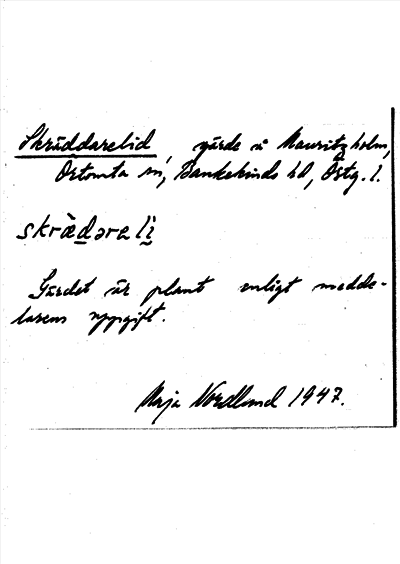 Skräddarelid, gärde å Mauritzholm,
Örtomta sn, Bankekinds hd, Östg. l.
skrä̀dəreli̇̀
Gärdet är plant enligt medde-
larens uppgift.
Maja Nordlund 1947.